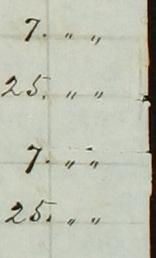 7. " "
25. " "
7. " "
25. " "